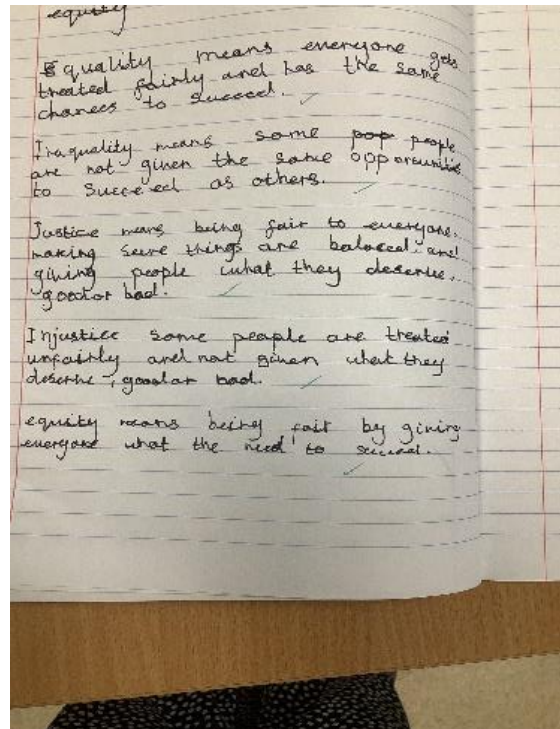 equity
Equality means everyone gets
treated fairly and has the same
chances to succeed.
Inaquality means some pop people
are not given the same opportunities
to Succeed as others.
Justice means being fair to everyone.
making sure things are balaced and
giving people what they deserve,
good or bad.
Injustice some people are treated
unfairly and not given what they
deserve, good or bad.
equity means being fair by giving
everyone what the need to succeed.